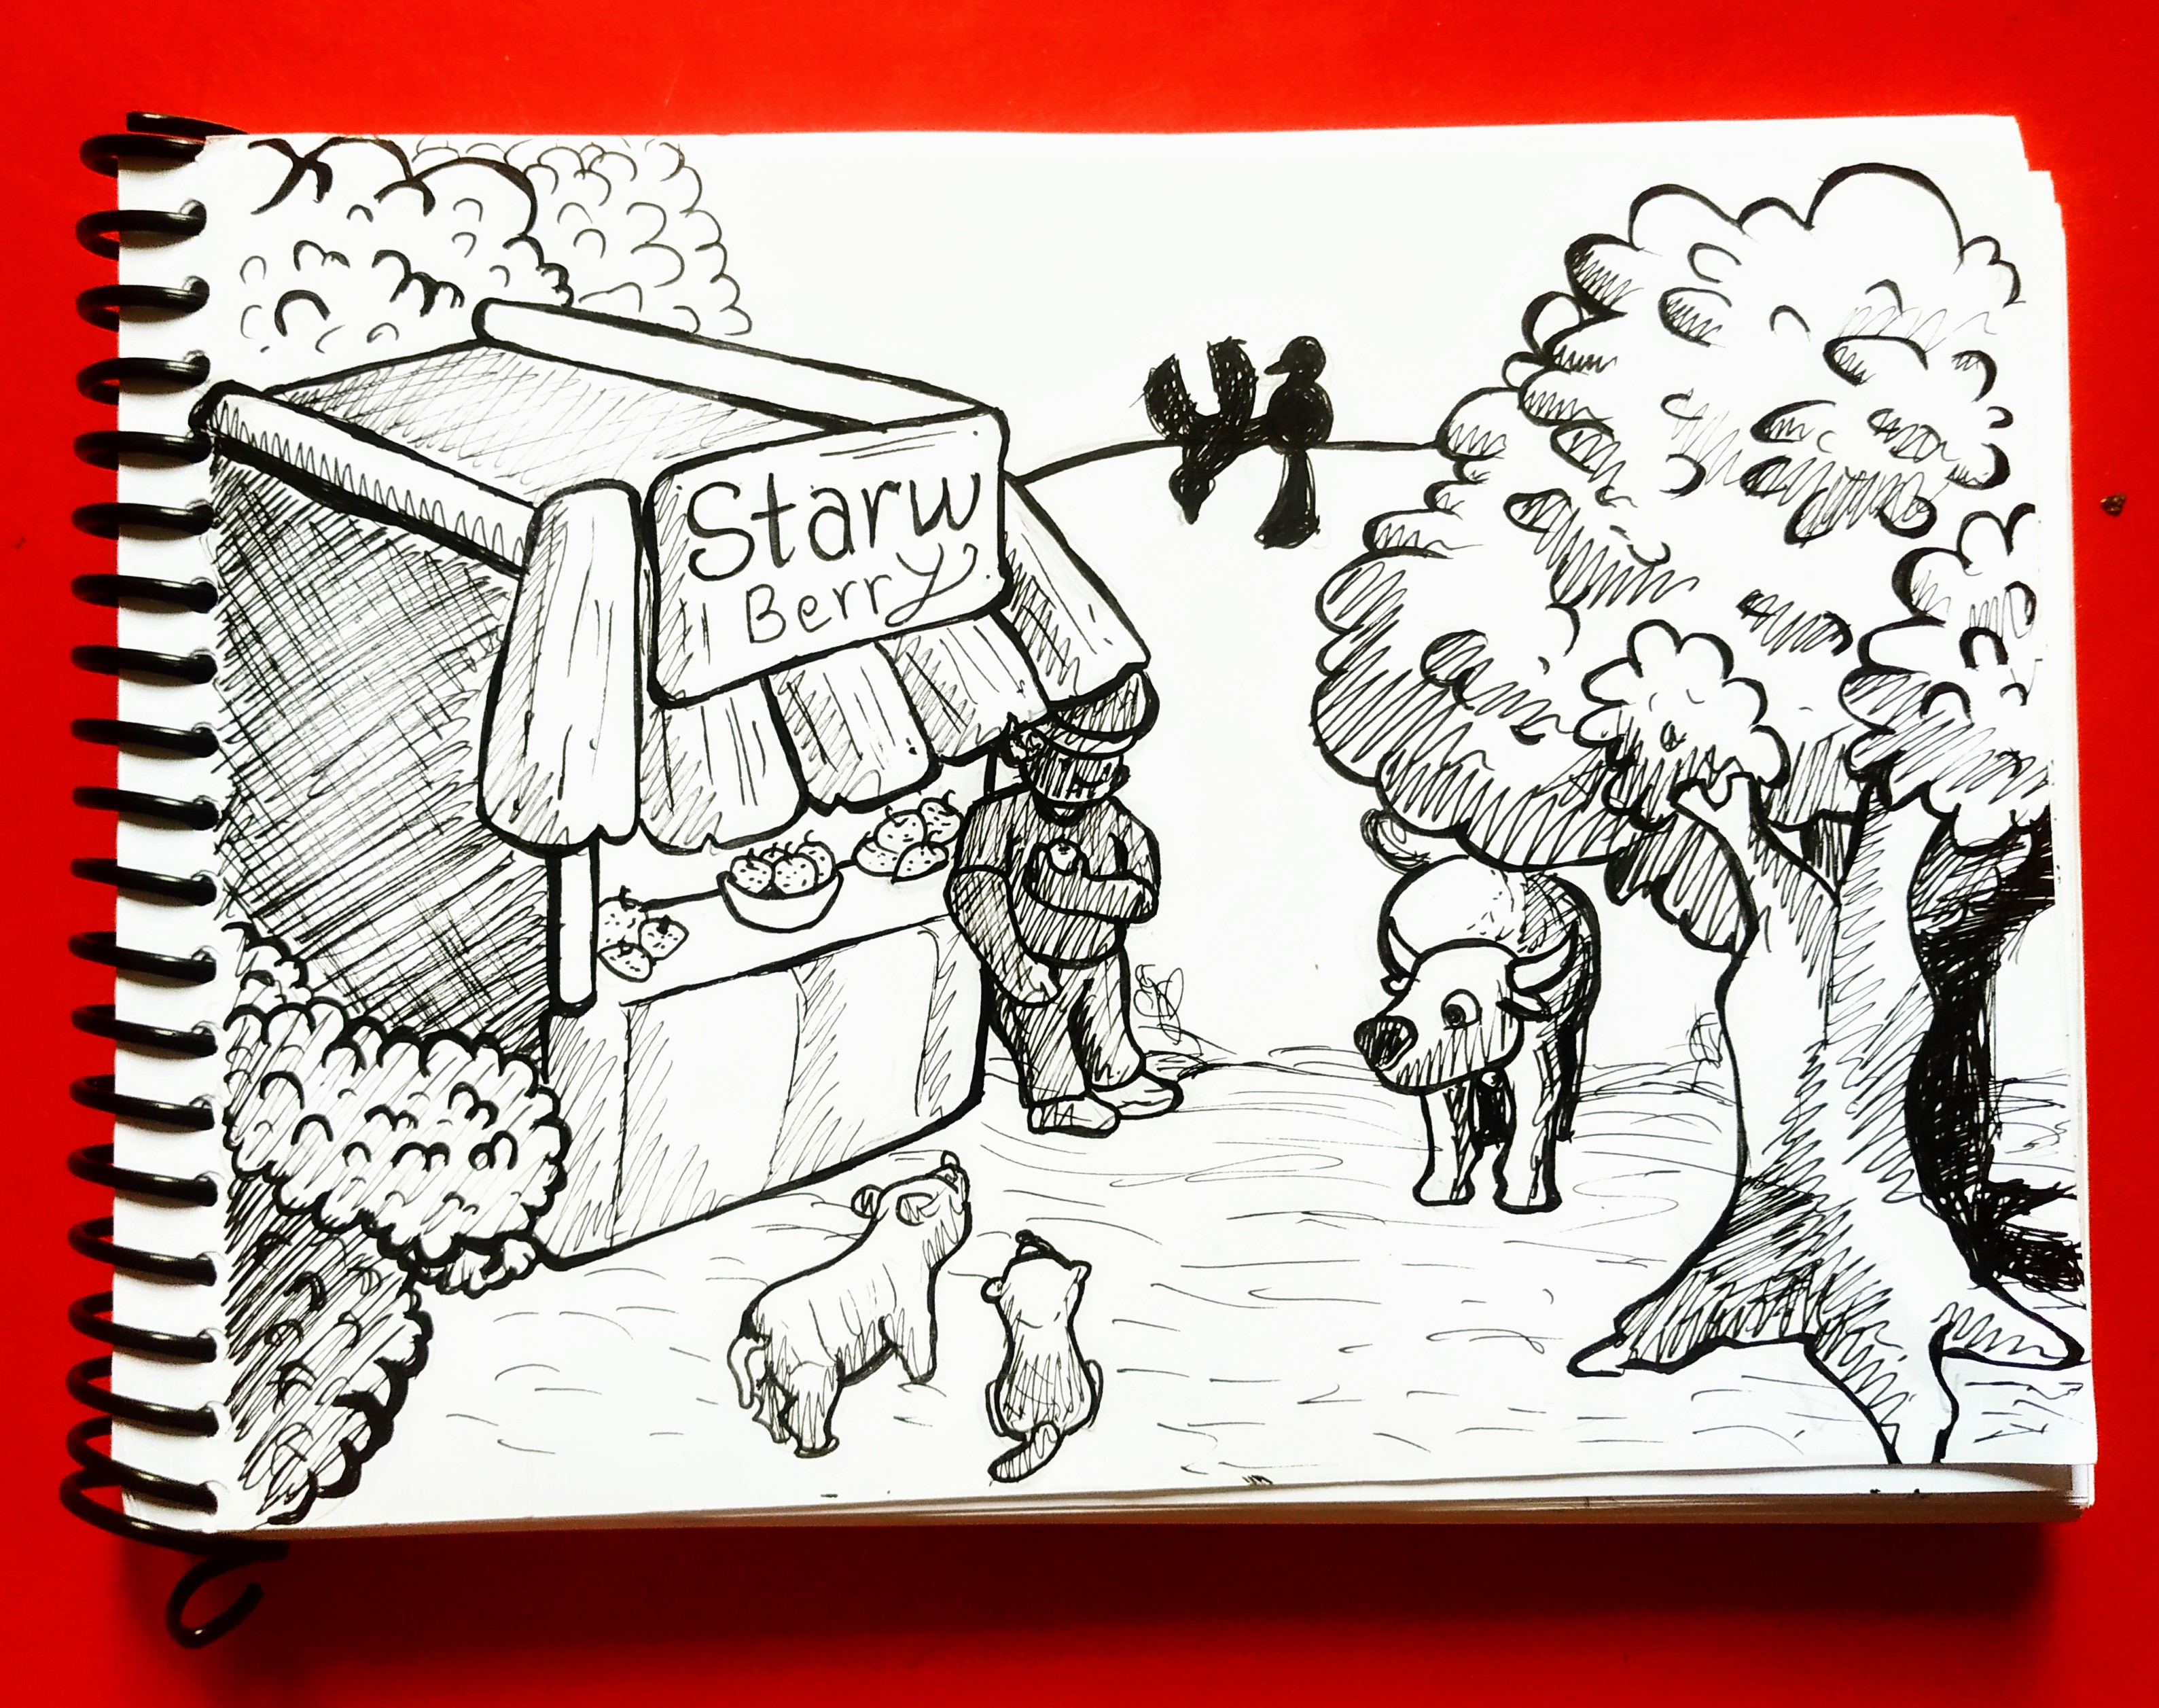 Starw
Berry